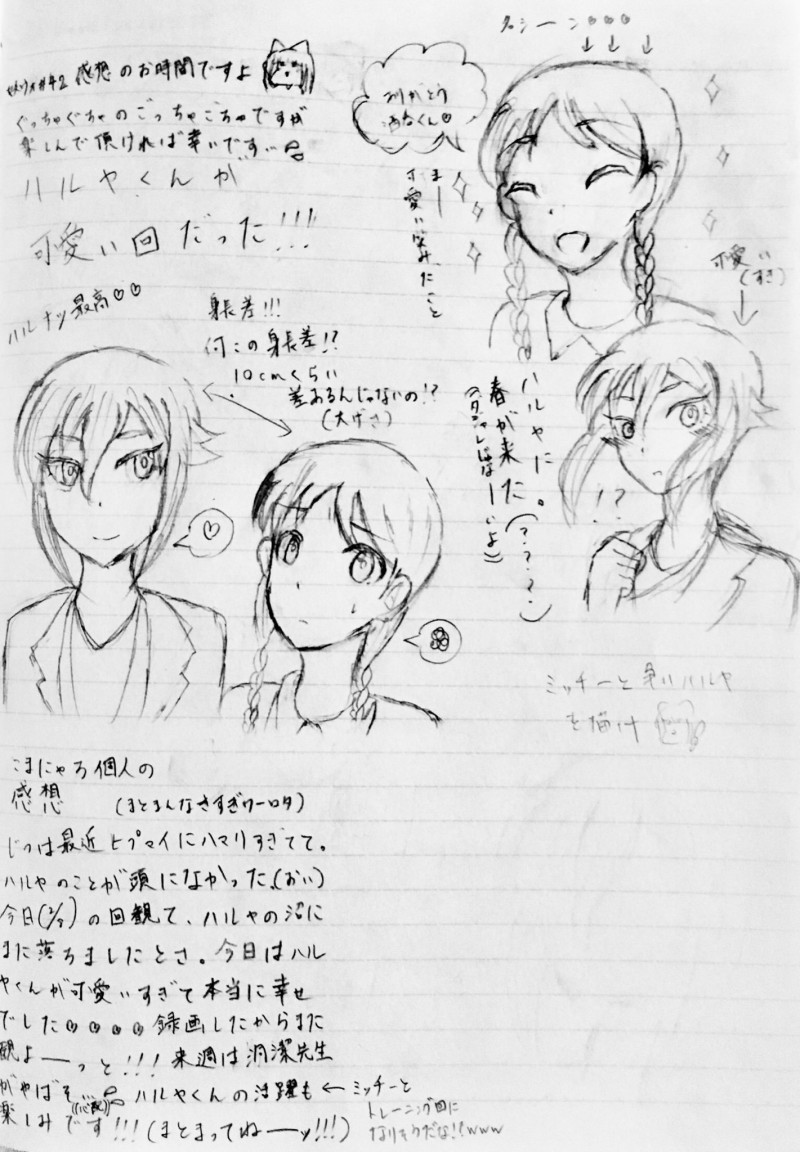 感想のお時間ですよ
ぐっちゃぐちゃのごっちゃごちゃですが
楽しんで頂ければ幸いです
ハルヤくんが
可愛い回だった!!!
ハルナツ最高♡♡
身長差!!!
何この身長差!?
10cmくらい
差あるんじゃないの!?
(大げさ)
名シーン♡♡♡
↓ ↓ ↓
ありがとう
まー
可愛い笑みだこと
可愛い
(すき)
ハルヤに。
春が来た(????)
(ダジャレじゃなーいよ)
!?
♡
ミッチーと争いハルヤ
を描け
こまにゃろ個人の
感想
(まとまんなさすぎワーロタ)
じつは最近ヒプマイにハマりすぎてて。
ハルヤのことが頭になかった。(おい)
今日(2/7)の回観て、ハルヤの沼に
また落ちましたとさ。今日はハル
ヤくんが可愛いすぎて本当に幸せ
でした♡♡♡♡録画したからまた
観よーーっと!!!来週は洞潔先生
がやばそ
((心配))
ハルヤくんの活躍も
楽しみです!!!(まとまってねーーッ!!!)
←ミッチーと
トレーニング回に
なりそうだな!!www